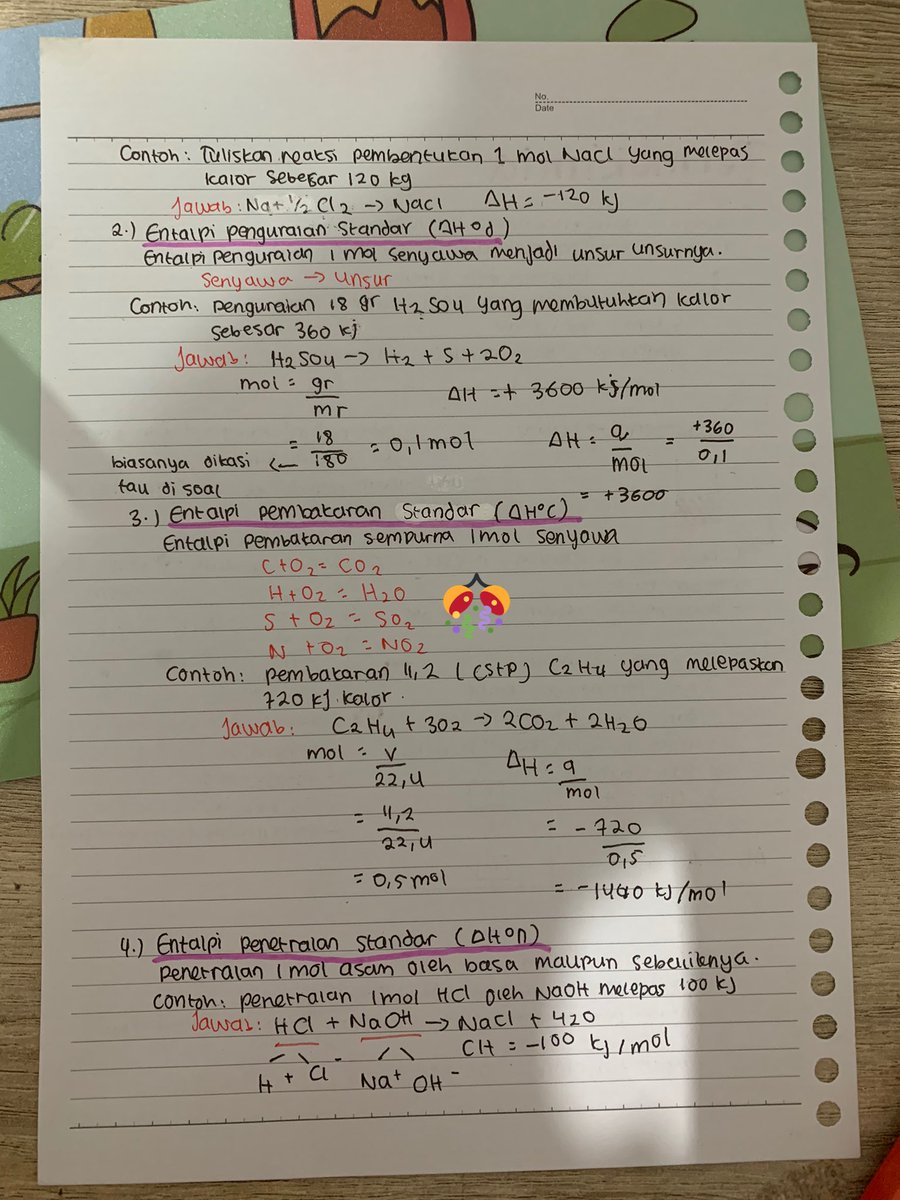 No.
Date
Contoh: Tuliskan reaksi pembentukan 1 mol Nacl yang melepas
kalor sebesar 120 kg
Jawab: Na + 1/2 Cl2 → Nacl ΔH = -120 kj
2.) Entalpi penguraian Standar (ΔH°d)
Entalpi penguraian 1 mol senyawa menjadi unsur unsurnya.
Senyawa → Unsur
Contoh: penguraian 18 gr H2SO4 yang membutuhkan kalor
sebesar 360 kj
Jawab: H2SO4 → H2 + S + 2O2
mol = gr/mr ΔH = + 3600 kj/mol
= 18/180 = 0,1 mol ΔH = q/mol = +360/0,1
biasanya dikasi ←
tau di soal
= +3600
3.) Entalpi pembakaran Standar (ΔH°C)
Entalpi pembakaran sempurna 1 mol senyawa
C+O2 = CO2
H+O2 = H2O
S + O2 = SO2
N + O2 = NO2
Contoh: pembakaran 11,2 l (STP) C2H4 yang melepaskan
720 kj kalor.
Jawab: C2H4 + 3O2 → 2CO2 + 2H2O
mol = v/22,4 ΔH = q/mol
= 11,2/22,4 = -720/0,5
= 0,5 mol = -1440 kj/mol
4.) Entalpi penetralan standar (ΔH°n)
penetralan 1 mol asam oleh basa maupun sebaliknya.
Contoh: penetralan 1 mol HCl oleh NaOH melepas 100 kj
Jawab: HCl + NaOH → NaCl + H2O
CH = -100 kj/mol
H + Cl - Na+ OH-